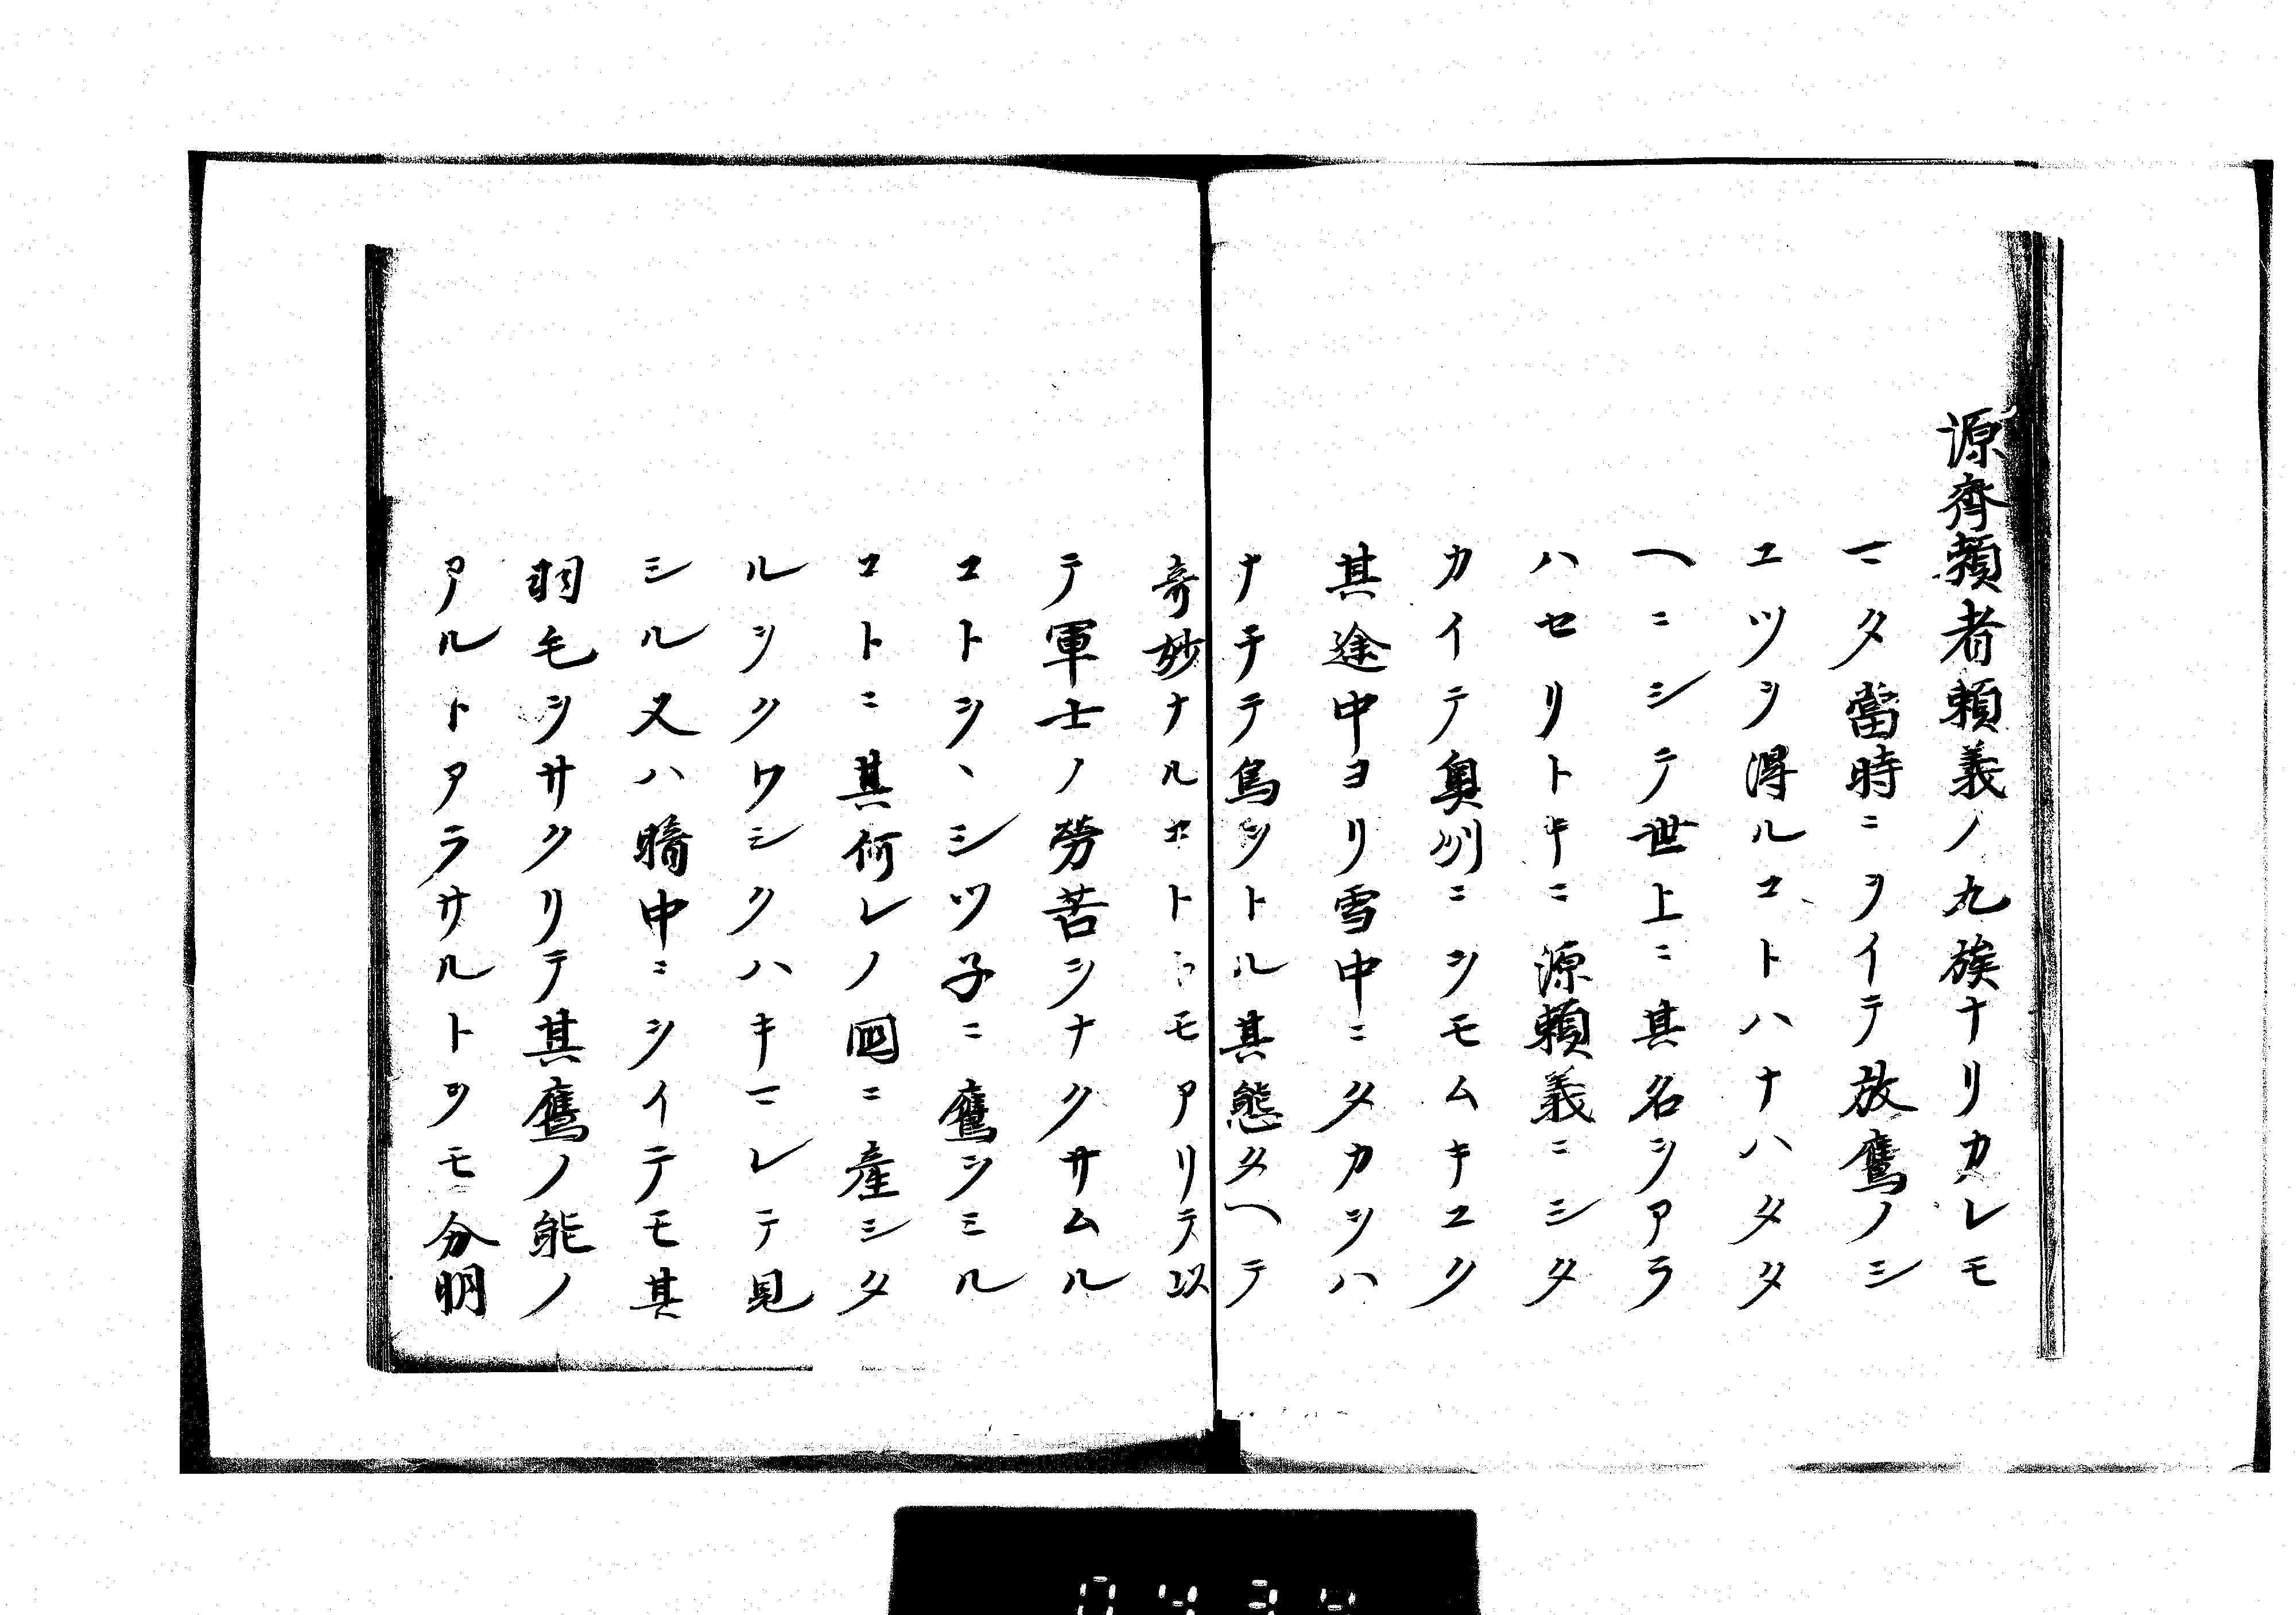 源齊頼者頼義ノ九族ナリカレモ
マタ當時ニヲイテ放鷹ノシ
ユツヲ得ルコトハナハタタ
ヘニシテ世上ニ其名ヲアラ
ハセリトキニ源頼義ニシタ
カイテ奥州ニヲモムキユク
其途中ヨリ雪中ニタカヲハ
ナチテ鳥ヲトル其態タヘテ
奇妙ナルホトニモアリテ以
テ軍士ノ勞苦ヲナクサムル
コトヲ、シツ子ニ鷹ヲミル
コトニ其何レノ國ニ産シタ
ルヲクワシクハキマレテ見
シル又ハ暗中ニヲイテモ其
羽毛ヲサクリテ其鷹ノ能ノ
アルトアラサルトヲモ分明